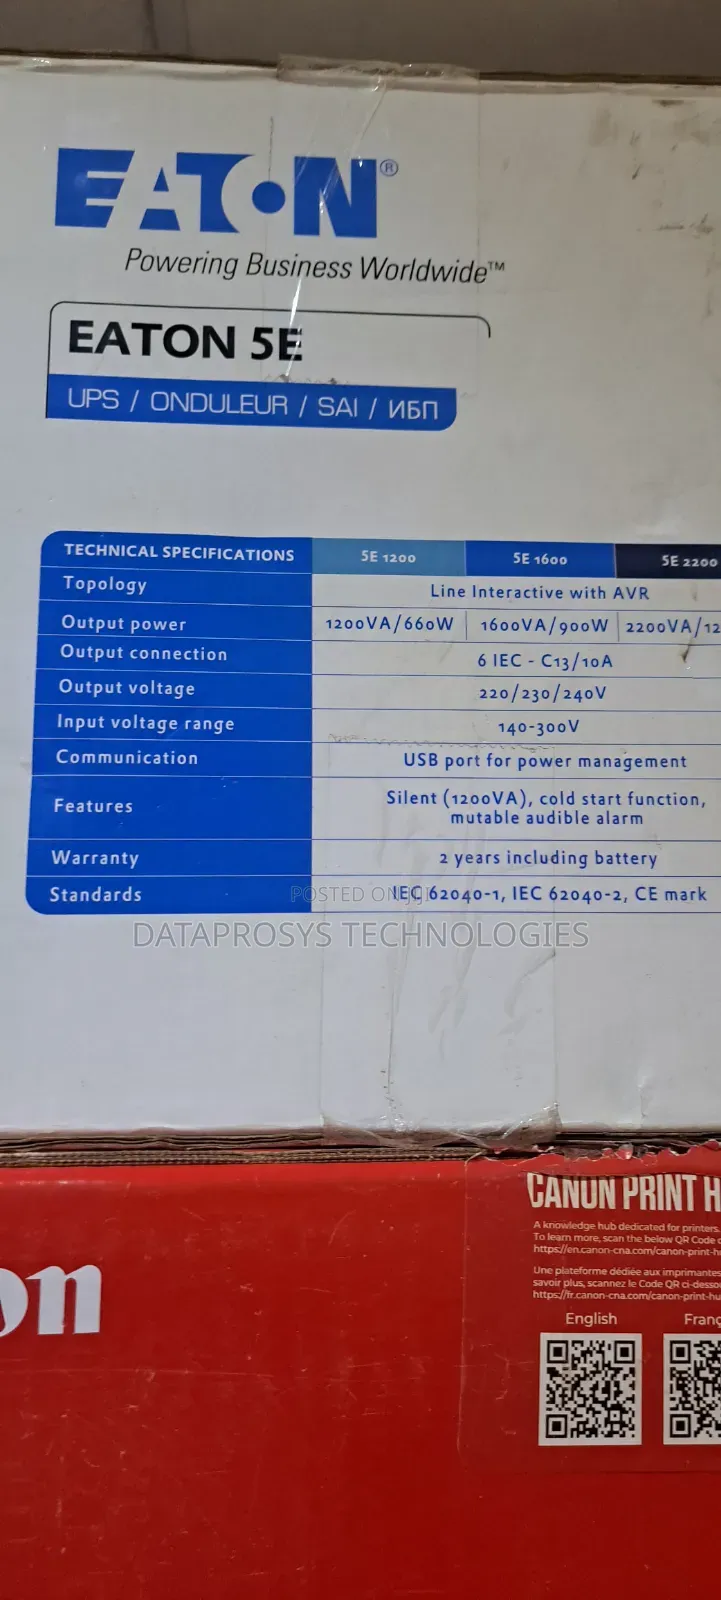 EATON®
Powering Business Worldwide™
EATON 5E
UPS / ONDULEUR / SAI / ИБП
TECHNICAL SPECIFICATIONS 5E 1200 5E 1600 5E 2200
Topology Line Interactive with AVR
Output power 1200VA/660W 1600VA/900W 2200VA/12
Output connection 6 IEC - C13/10A
Output voltage 220/230/240V
Input voltage range 140-300V
Communication USB port for power management
Features Silent (1200VA), cold start function,
mutable audible alarm
Warranty 2 years including battery
Standards IEC 62040-1, IEC 62040-2, CE mark
POSTED ON
DATAPROSYS TECHNOLOGIES
on
CANON PRINT H
A knowledge hub dedicated for printers.
To learn more, scan the below QR Code
https://en.canon-cna.com/canon-print-h
Une plateforme dédiée aux imprimantes
savoir plus, scannez le Code QR ci-desso
https://fr.canon-cna.com/canon-print-hu
English Franç